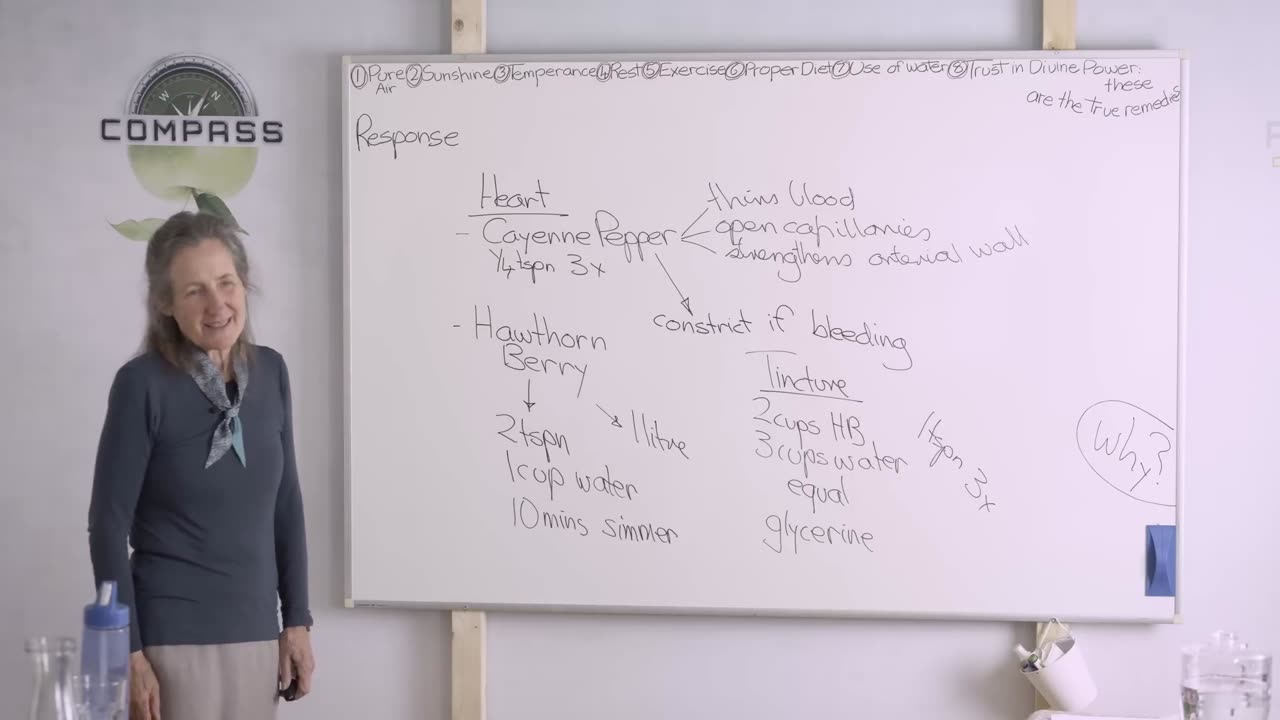 W N
COMPASS
①Pure②Sunshine③Temperance④Rest⑤Exercise⑥Proper Diet⑦Use of water⑧Trust in Divine Power:
Air
these
are the True remedies
Response
Heart
- Cayenne Pepper
1/4 tspn 3x
thins blood
open capillaries
strengthens arterial wall
constrict if bleeding
- Hawthorn
Berry
2tspn
1cup water
10mins simmer
1litre
Tincture
2cups HB
3cups water
equal
glycerine
1tspn 3x
Why?